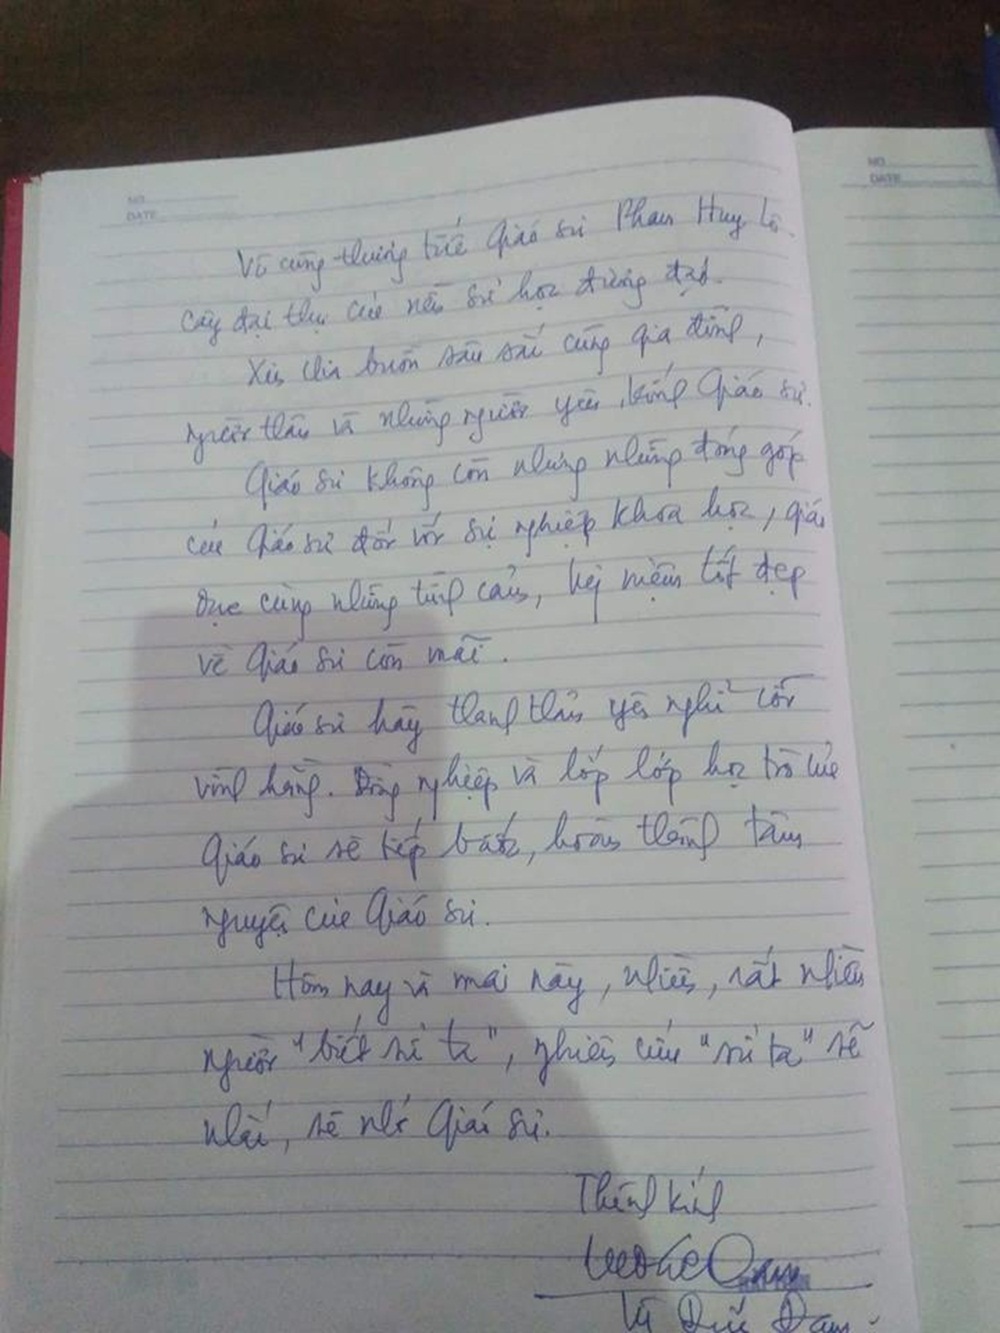 NO.
DATE
NO.
DATE
Vô cùng thương tiếc Giáo sư Phan Huy Lê.
Cây đại thụ của nền sử học đương đại.
Xin chia buồn sâu sắc cùng gia đình,
người thân và những người yêu kính Giáo sư.
Giáo sư không còn nhưng những đóng góp
của Giáo sư đối với sự nghiệp khoa học, giáo
dục cùng những tình cảm, kỷ niệm tốt đẹp
về Giáo sư còn mãi.
Giáo sư hãy thanh thản yên nghỉ cõi
vĩnh hằng. Đồng nghiệp và lớp lớp học trò của
Giáo sư sẽ tiếp bước, hoàn thành tâm
nguyện của Giáo sư.
Hôm nay và mai này, nhiều, rất nhiều
người "biết sử ta", nghiên cứu "sử ta" sẽ
nhắc, sẽ nhớ Giáo sư.
Thành kính
Vũ Đức Đam